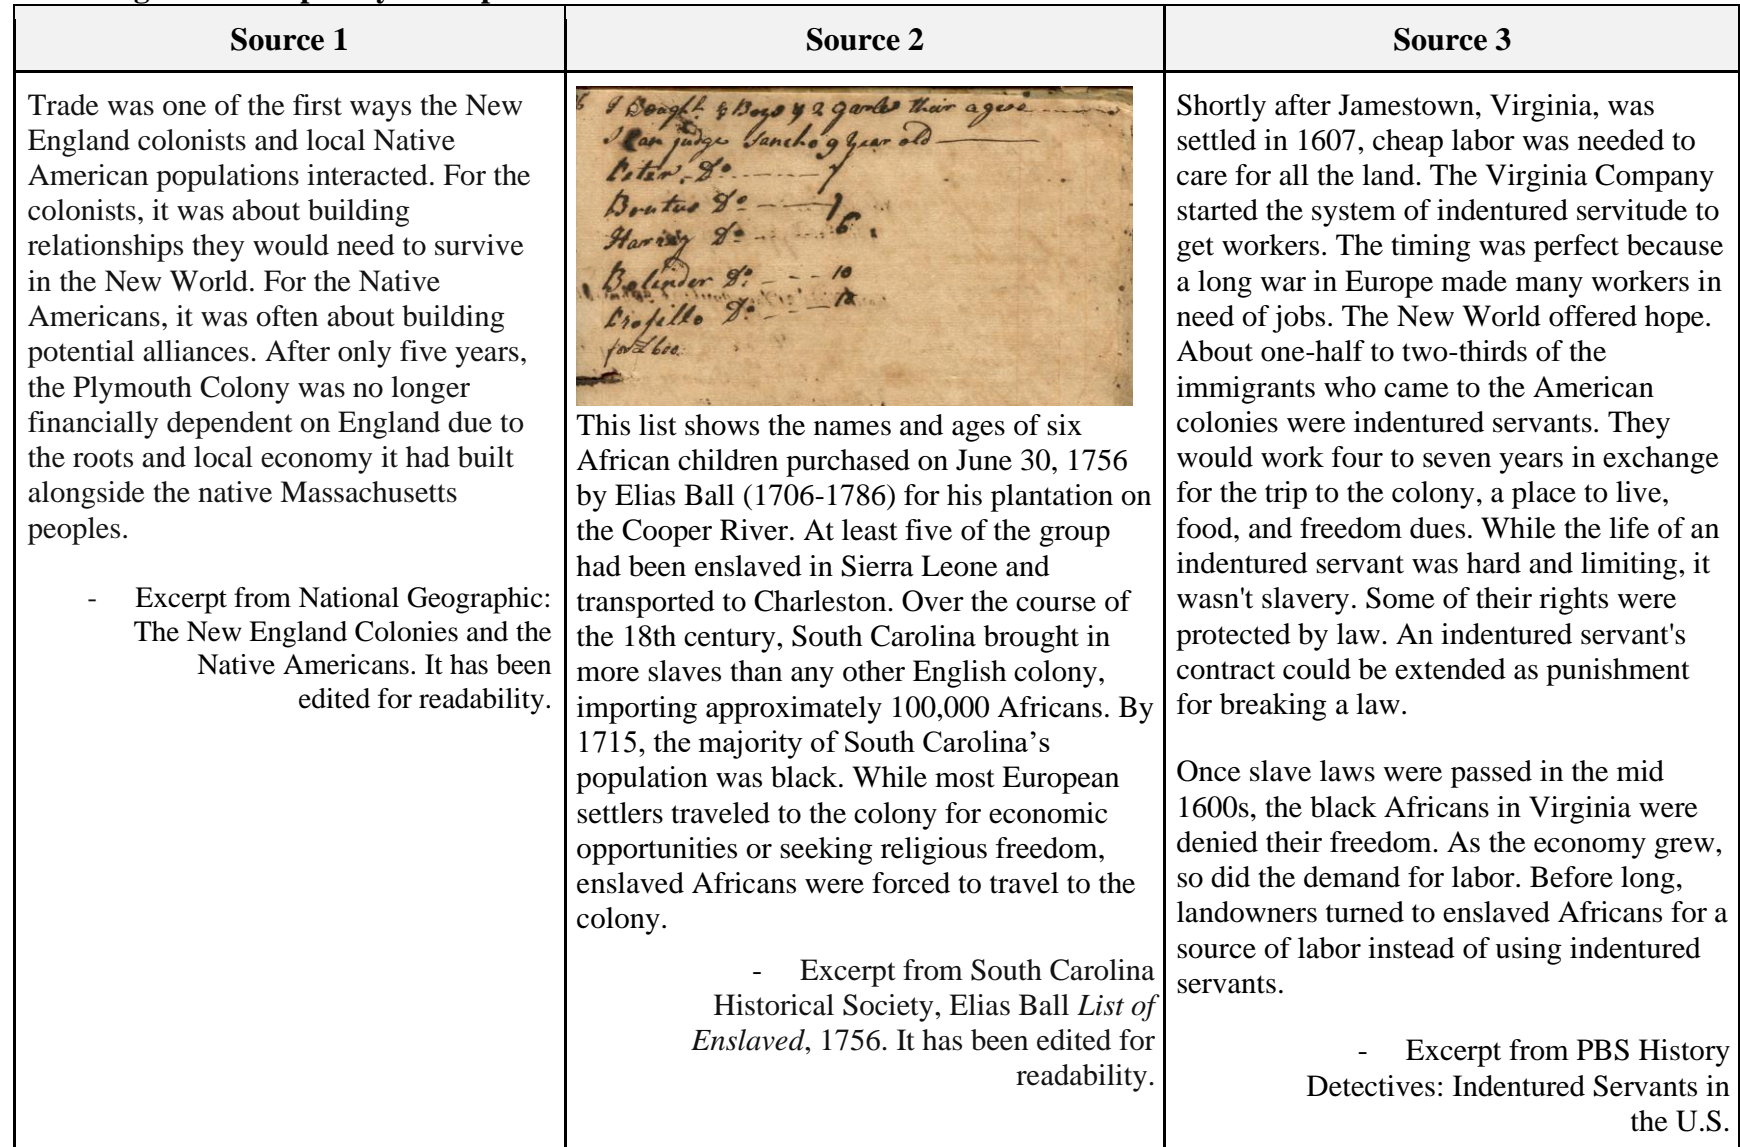 Source 1
Trade was one of the first ways the New
England colonists and local Native
American populations interacted. For the
colonists, it was about building
relationships they would need to survive
in the New World. For the Native
Americans, it was often about building
potential alliances. After only five years,
the Plymouth Colony was no longer
financially dependent on England due to
the roots and local economy it had built
alongside the native Massachusetts
peoples.
- Excerpt from National Geographic:
The New England Colonies and the
Native Americans. It has been
edited for readability.
Source 2
I Bought 4 Boys & 2 Garles their ages
I Can judge Sancho 9 year old
Peter Do 7
Brutus Do 7
Harry Do 6
Belinder Do 10
Do
for £600
This list shows the names and ages of six
African children purchased on June 30, 1756
by Elias Ball (1706-1786) for his plantation on
the Cooper River. At least five of the group
had been enslaved in Sierra Leone and
transported to Charleston. Over the course of
the 18th century, South Carolina brought in
more slaves than any other English colony,
importing approximately 100,000 Africans. By
1715, the majority of South Carolina’s
population was black. While most European
settlers traveled to the colony for economic
opportunities or seeking religious freedom,
enslaved Africans were forced to travel to the
colony.
- Excerpt from South Carolina
Historical Society, Elias Ball List of
Enslaved, 1756. It has been edited for
readability.
Source 3
Shortly after Jamestown, Virginia, was
settled in 1607, cheap labor was needed to
care for all the land. The Virginia Company
started the system of indentured servitude to
get workers. The timing was perfect because
a long war in Europe made many workers in
need of jobs. The New World offered hope.
About one-half to two-thirds of the
immigrants who came to the American
colonies were indentured servants. They
would work four to seven years in exchange
for the trip to the colony, a place to live,
food, and freedom dues. While the life of an
indentured servant was hard and limiting, it
wasn't slavery. Some of their rights were
protected by law. An indentured servant's
contract could be extended as punishment
for breaking a law.
Once slave laws were passed in the mid
1600s, the black Africans in Virginia were
denied their freedom. As the economy grew,
so did the demand for labor. Before long,
landowners turned to enslaved Africans for a
source of labor instead of using indentured
servants.
- Excerpt from PBS History
Detectives: Indentured Servants in
the U.S.